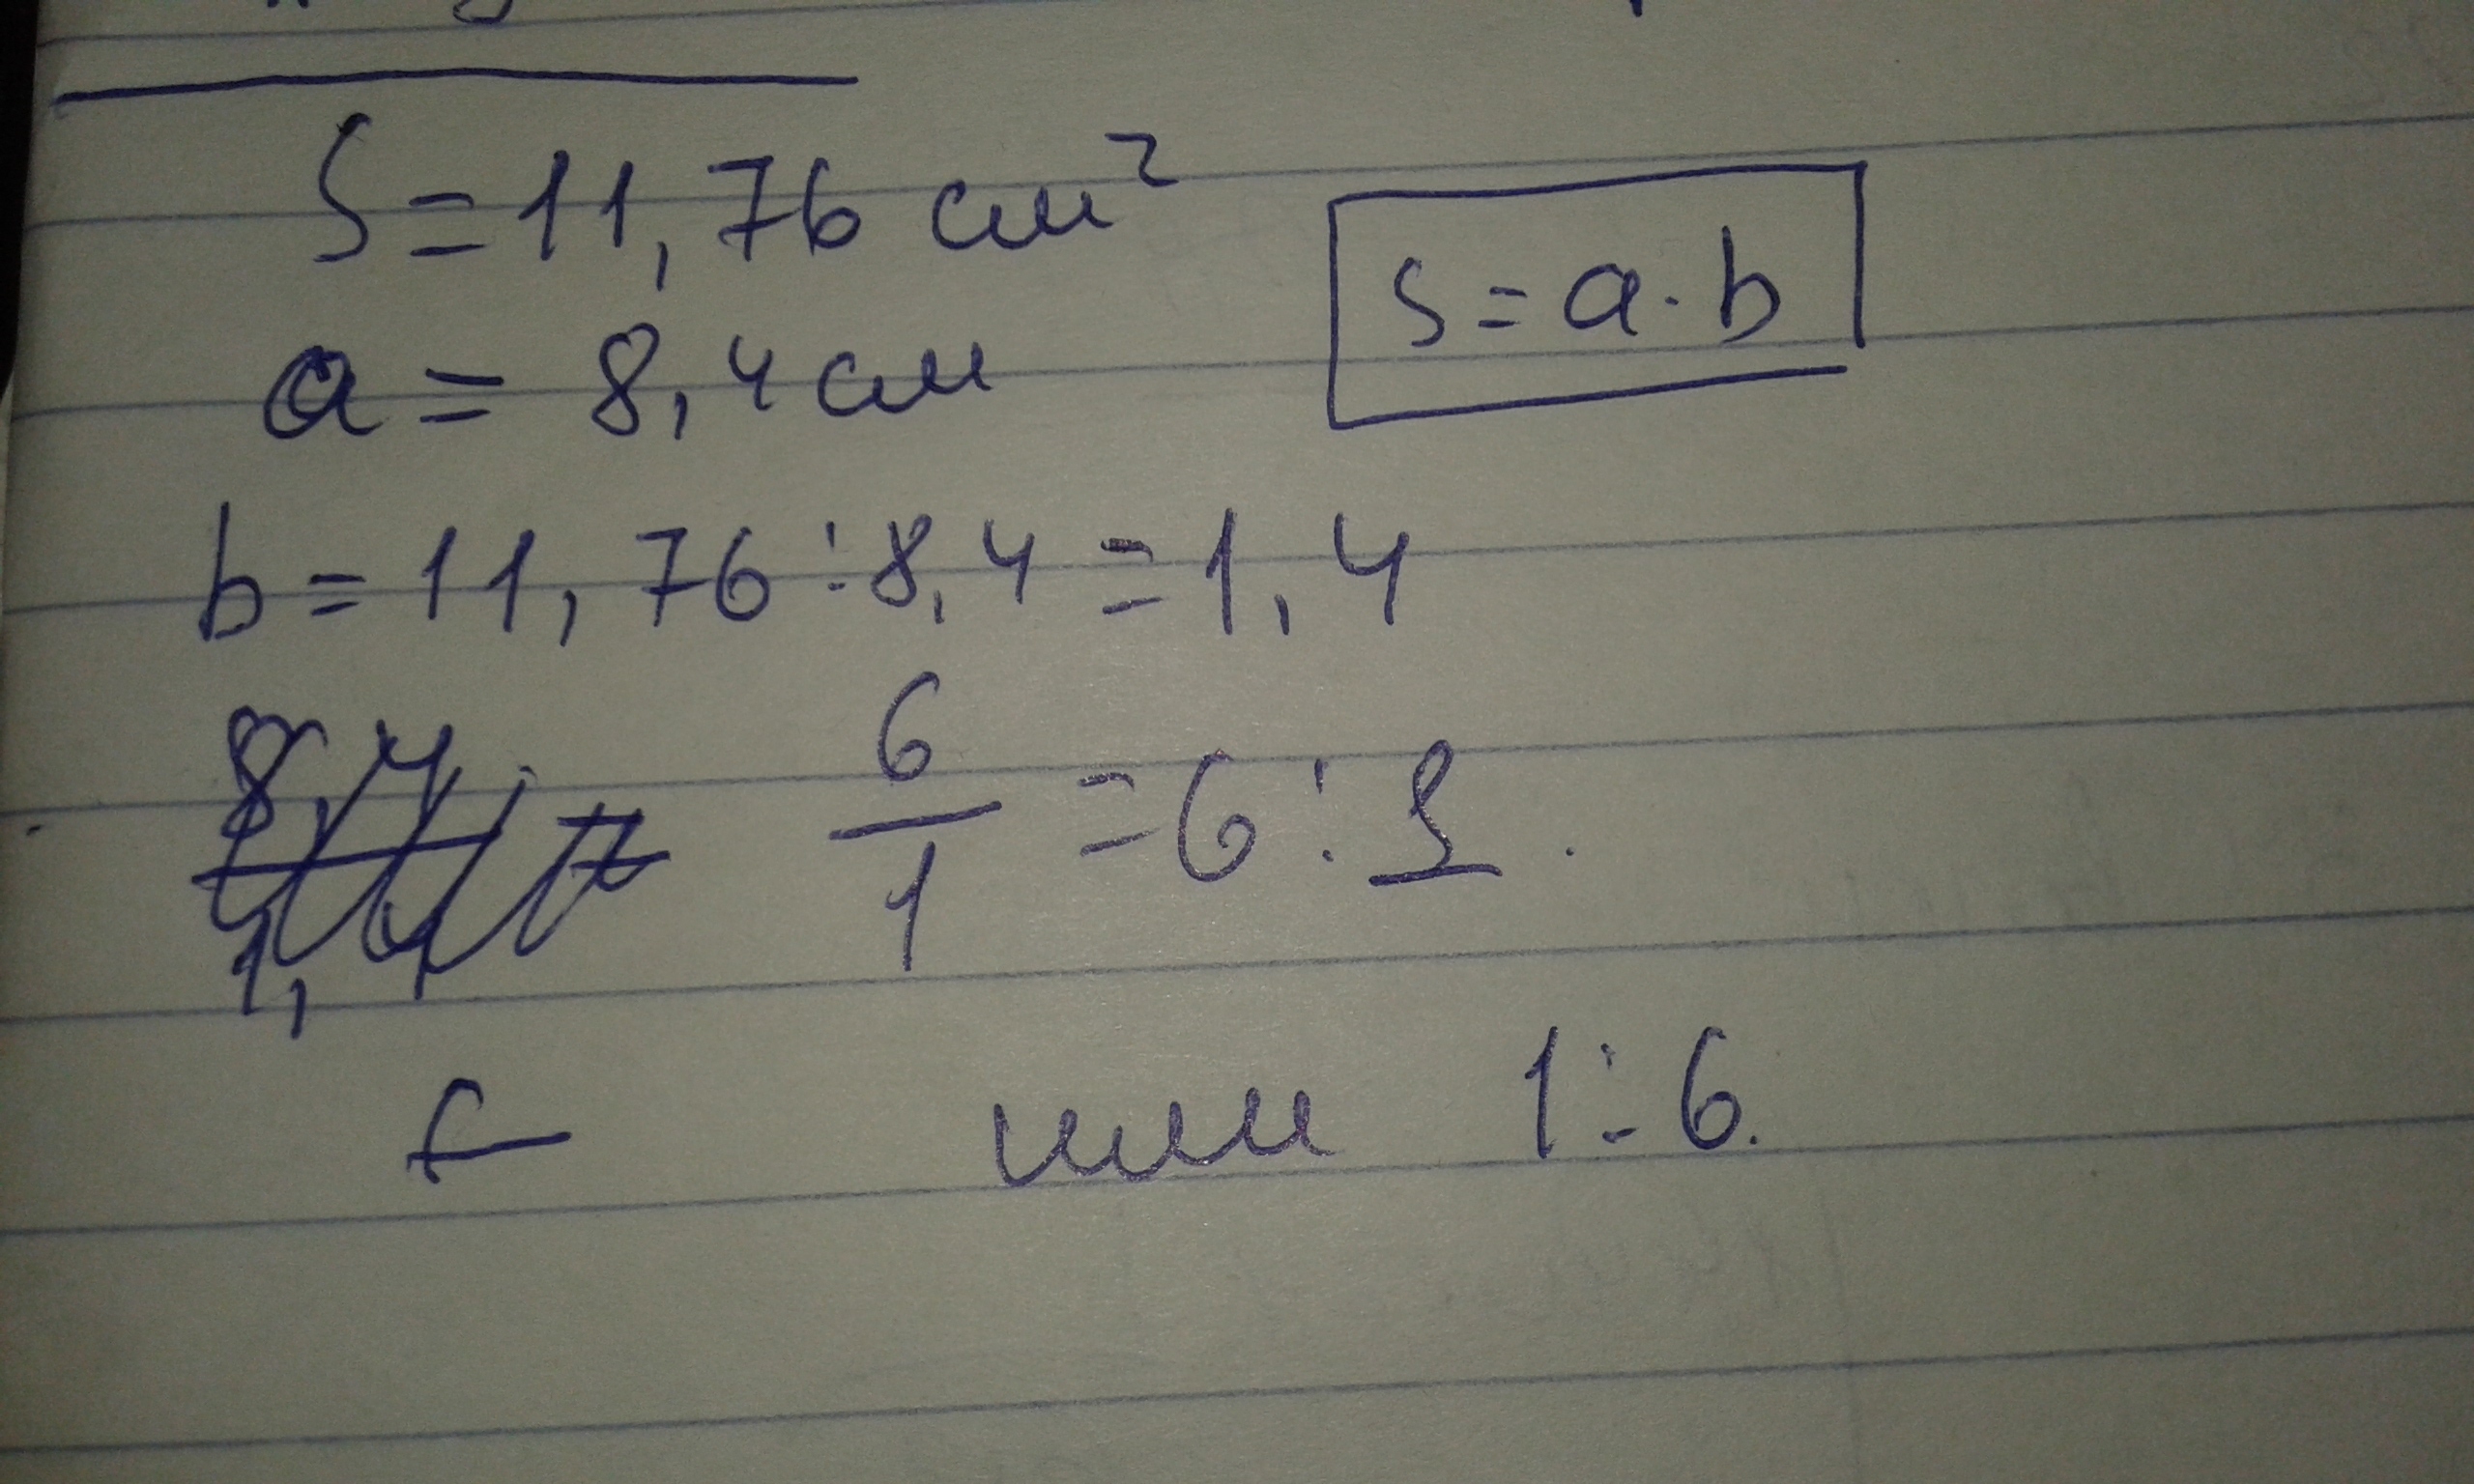 S = 11,76 см²
S = a · b
a = 8,4 см
b = 11,76 : 8,4 = 1,4
6/1 = 6 : 1.
или 1 : 6.